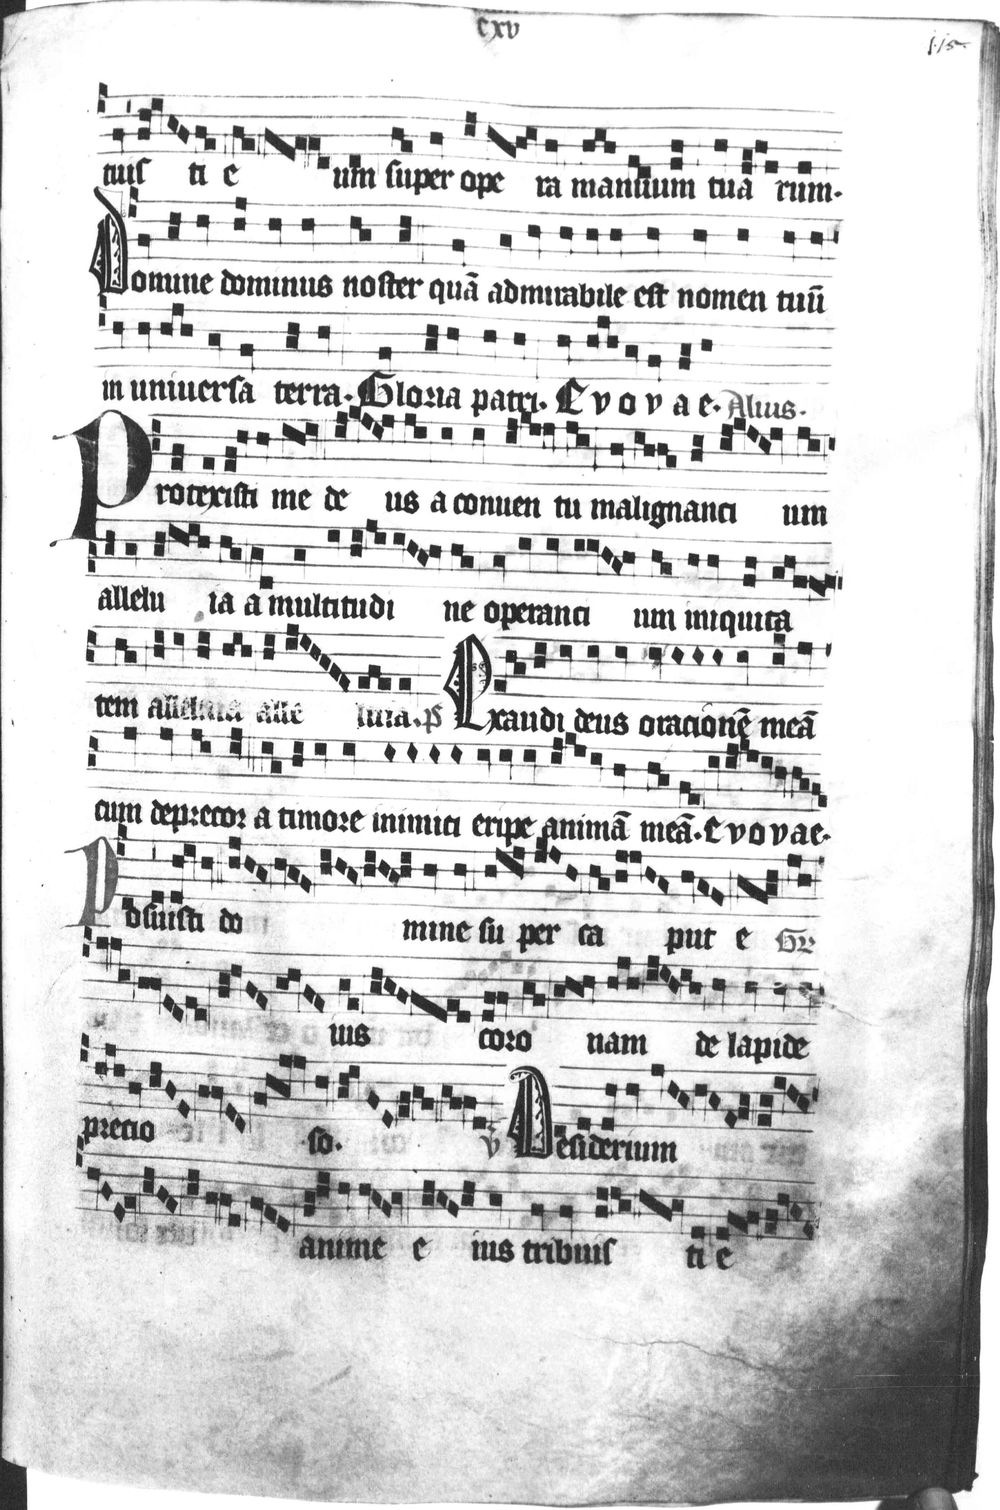 cxv
115
tuis ti e um super ope ra manuum tua rum.
Domine dominus noster quā admirabile est nomen tuū
in uniuersa terra. Gloria patri. E v o v a e. Alius.
Protexisti me de us a conuen tu malignanci um
allelu ia a multitudi ne operanci um iniquita
tem alleluia alle luia. ps Exaudi deus oracionē meā
cum deprecor a timore inimici eripe animā meā. E v o v a e.
Posuisti do mine su per ca put e Gr
ius coro nam de lapide
precio so. v Desiderium
anime e ius tribuis ti e